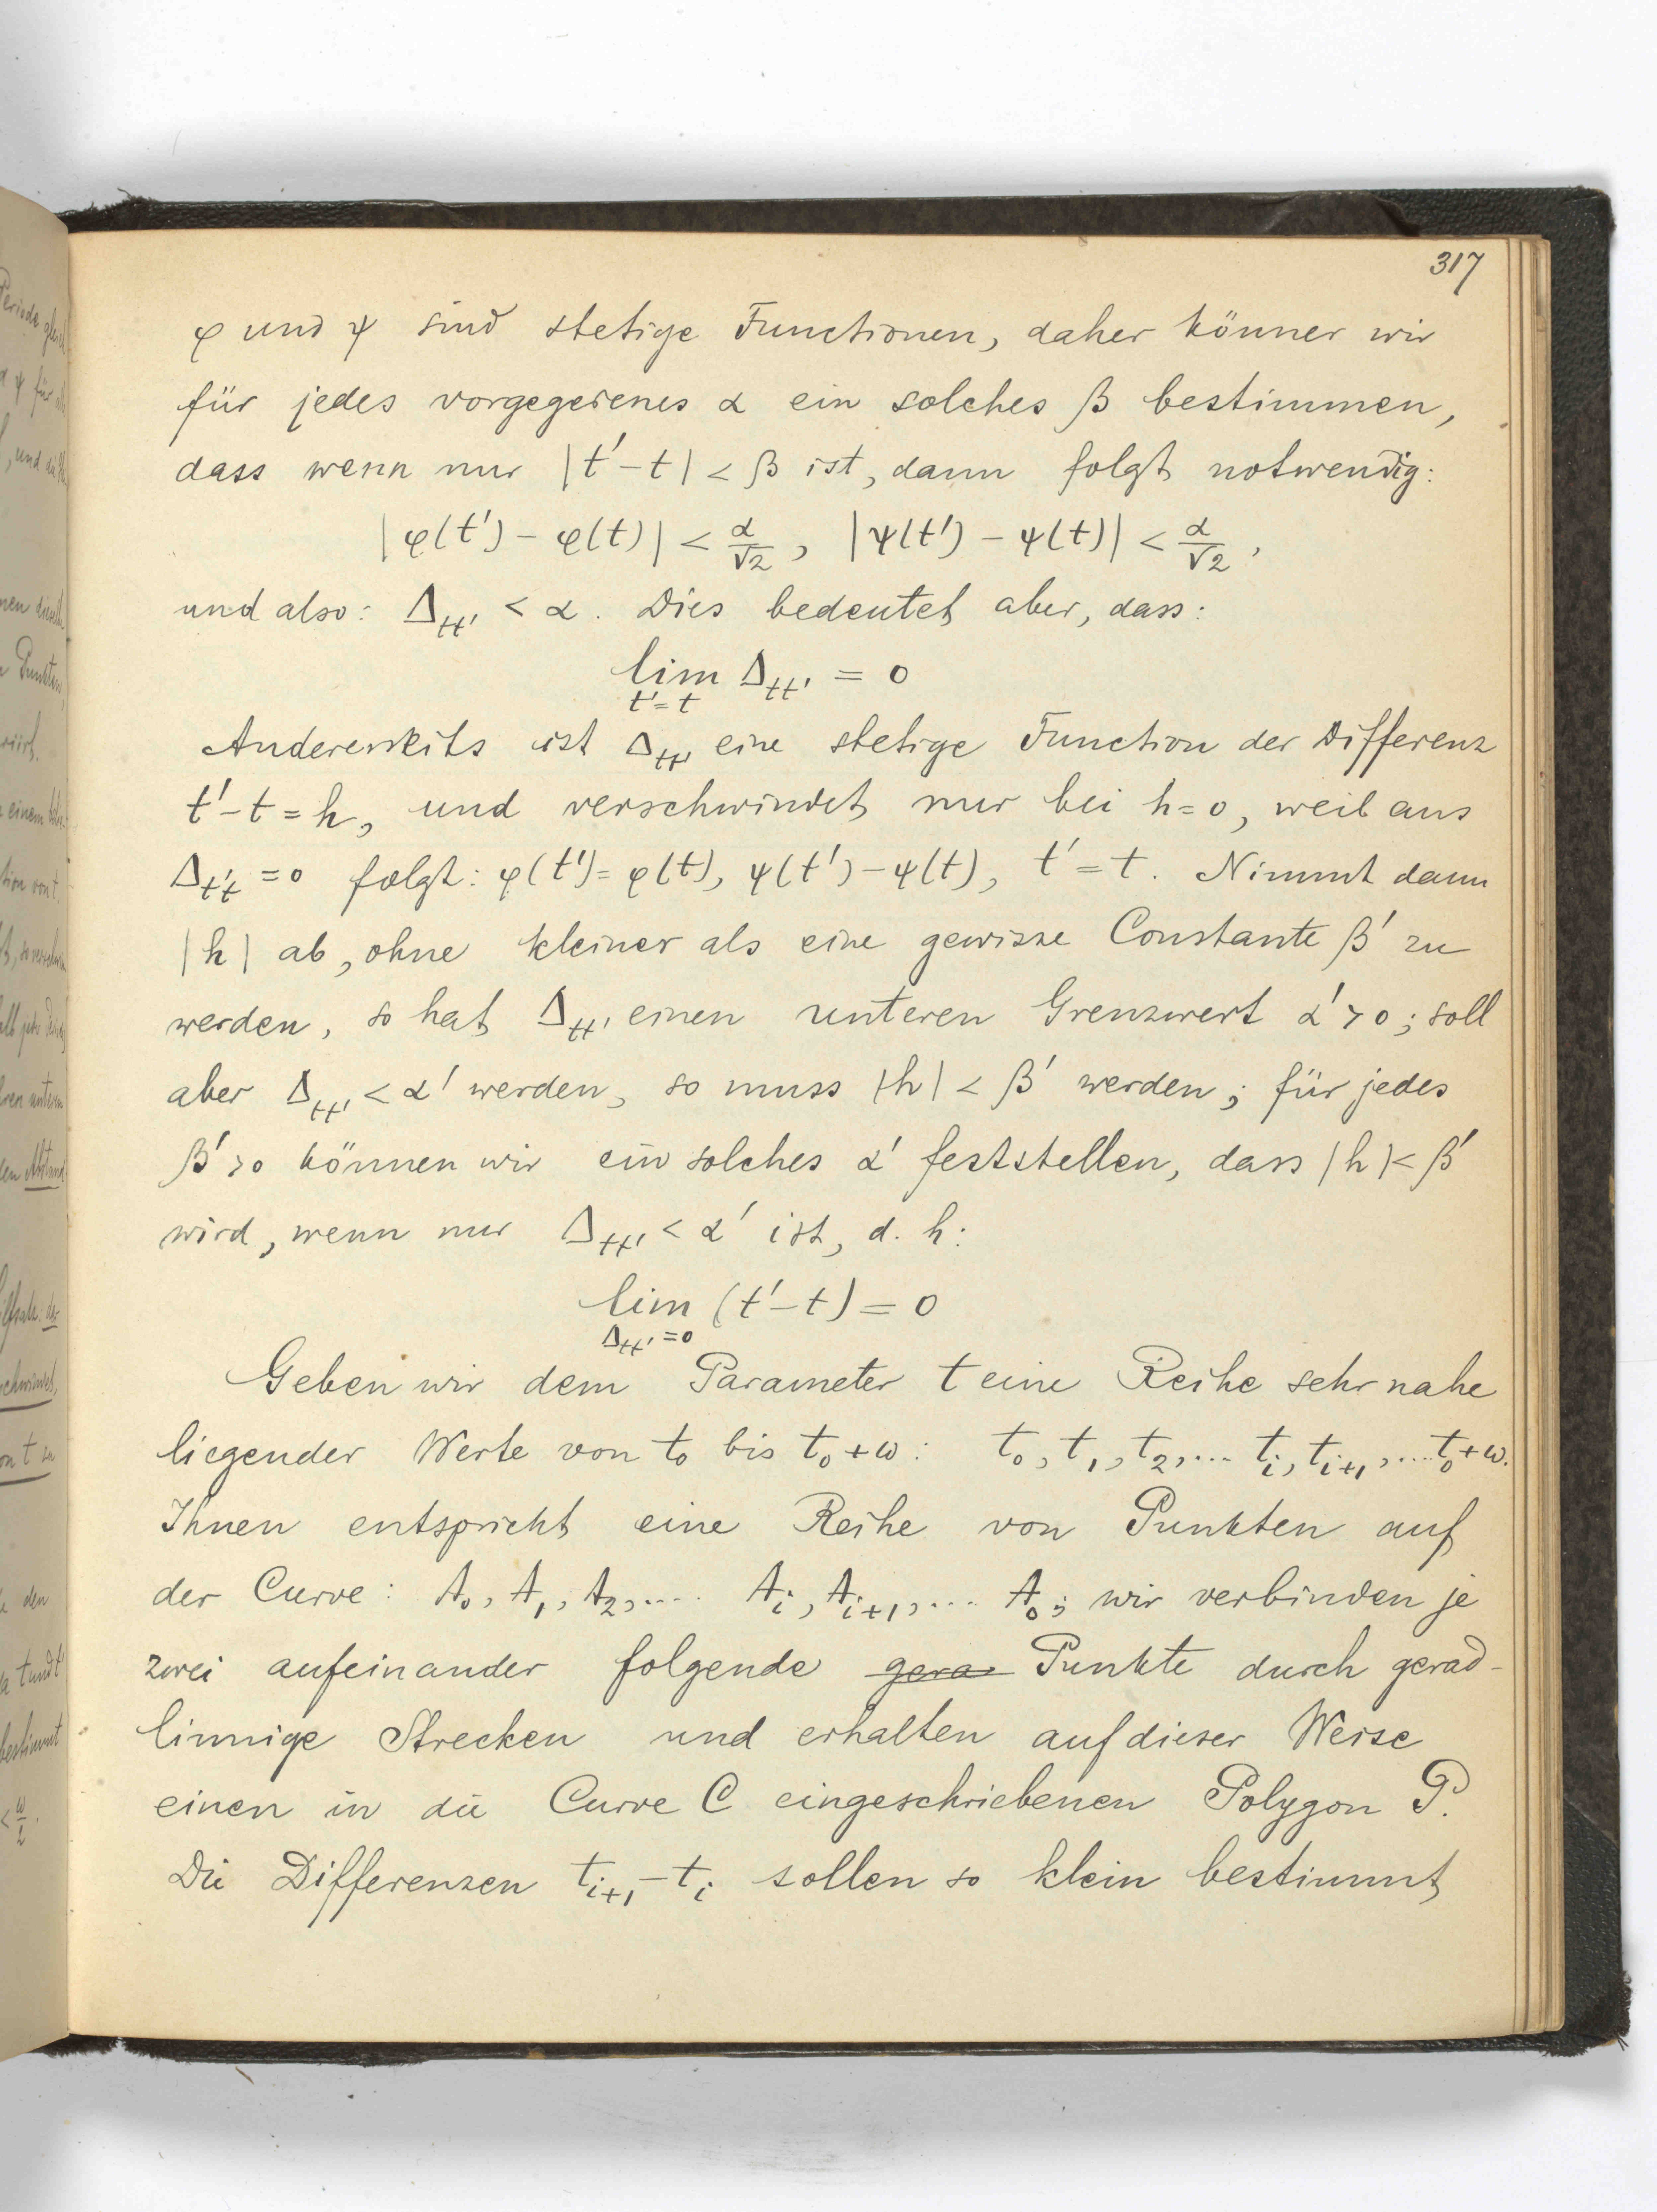 317
φ und ψ sind stetige Functionen, daher können wir
für jedes vorgegebenes α ein solches β bestimmen,
dass wenn nur |t′-t| < β ist, dann folgt notwendig:
|φ(t′) - φ(t)| < α/√2, |ψ(t′) - ψ(t)| < α/√2,
und also: Δtt′ < α. Dies bedeutet aber, dass:
lim Δtt′ = 0
t′=t
Andererseits ist Δtt′ eine stetige Function der Differenz
t′-t = h, und verschwindet nur bei h=0, weil aus
Δt′t = 0 folgt: φ(t′)=φ(t), ψ(t′)-ψ(t), t′=t. Nimmt dann
|h| ab, ohne kleiner als eine gewisse Constante β′ zu
werden, so hat Δtt′ einen unteren Grenzwert α′>0; soll
aber Δtt′ < α′ werden, so muss |h| < β′ werden; für jedes
β′>0 können wir ein solches α′ feststellen, dass |h| < β′
wird, wenn nur Δtt′ < α′ ist, d. h:
lim (t′-t) = 0
Δtt′=0
Geben wir dem Parameter t eine Reihe sehr nahe
liegender Werte von t₀ bis t₀+ω: t₀, t₁, t₂,... tᵢ, tᵢ₊₁,....t₀+ω.
Ihnen entspricht eine Reihe von Punkten auf
der Curve: A₀, A₁, A₂,.... Aᵢ, Aᵢ₊₁,... A₀; wir verbinden je
zwei aufeinander folgende gera Punkte durch gerad-
linnige Strecken und erhalten auf dieser Weise
einen in die Curve C eingeschriebenen Polygon P.
Die Differenzen tᵢ₊₁-tᵢ sollen so klein bestimmt